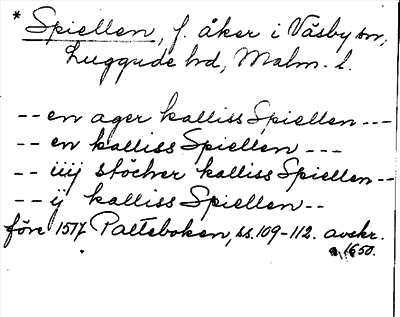 * Spiellen, f. åker i Väsby sn,
Luggude hd, Malm. l.
-- en ager kalliss Spiellen ---
-- en kalliss Spiellen ---
-- iiij stöcher kalliss Spiellen --
-- ij kalliss Spiellen --
före 1517 Palteboken, ss. 109-112. avskr.
a. 1650.